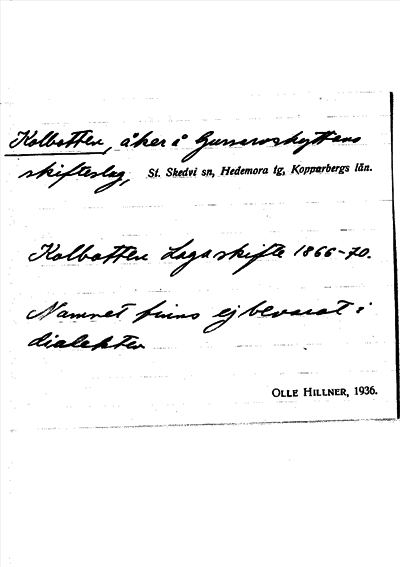 Kolbotten, åker å Gunnarshyttens
skifteslag, St. Skedvi sn, Hedemora tg, Kopparbergs län.
Kolbotten Laga skifte 1866-70.
Namnet finns ej bevarat i
dialekten
OLLE HILLNER, 1936.